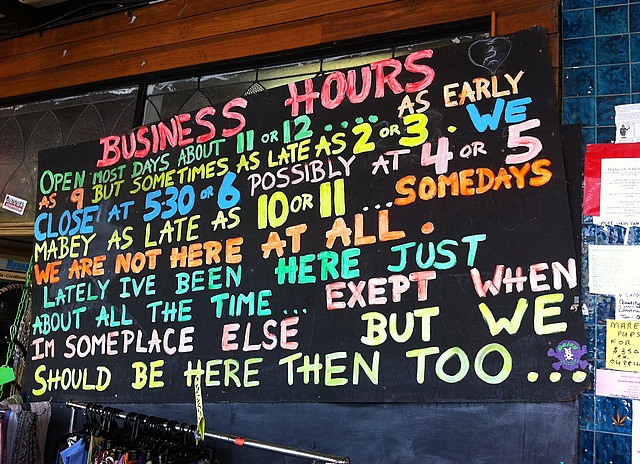 BUSINESS HOURS
OPEN MOST DAYS ABOUT 11 OR 12 ..... AS EARLY
AS 9 BUT SOMETIMES AS LATE AS 2 OR 3. WE
CLOSE AT 530 OR 6 POSSIBLY AT 4 OR 5
MABEY AS LATE AS 10 OR 11 ... SOMEDAYS
WE ARE NOT HERE AT ALL.
LATELY IVE BEEN HERE JUST
ABOUT ALL THE TIME ... EXEPT WHEN
IM SOMEPLACE ELSE BUT WE
SHOULD BE HERE THEN TOO....